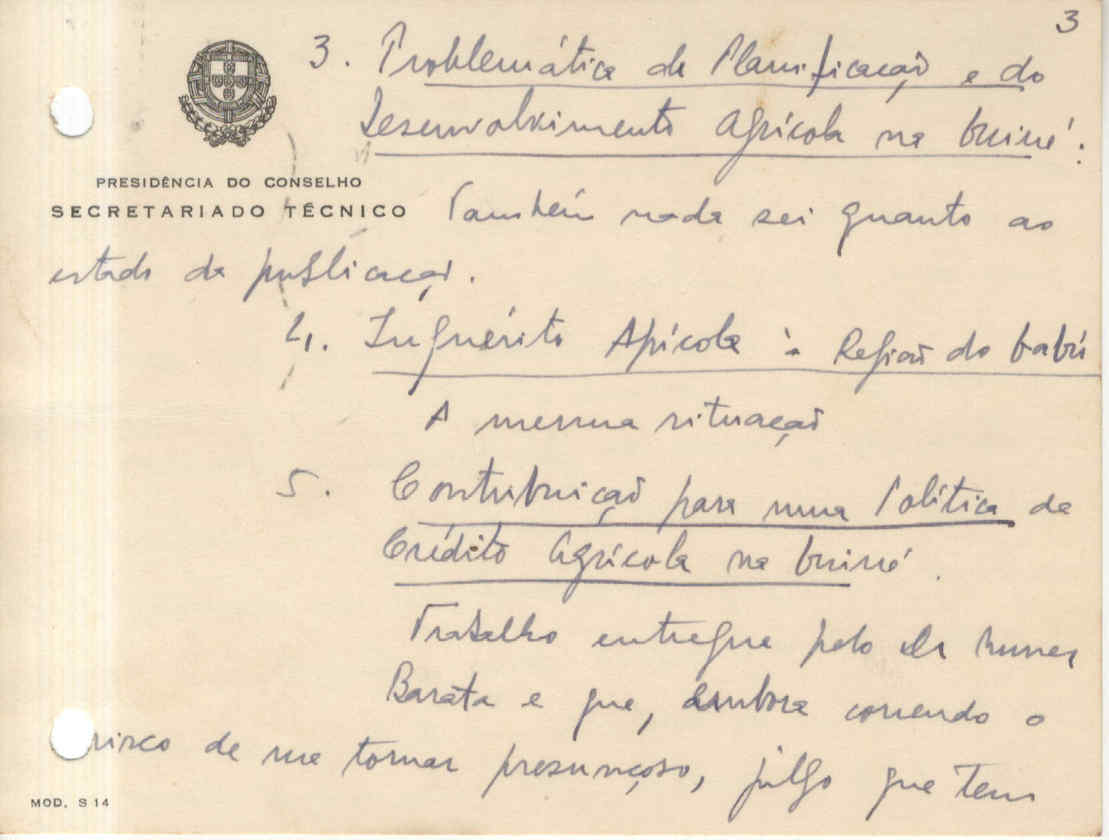 3
3. Problemática da Planificação e do
Desenvolvimento Agrícola na Guiné.
PRESIDÊNCIA DO CONSELHO
SECRETARIADO TÉCNICO
Também nada sei quanto ao
estado da publicação.
4. Inquérito Agrícola à Região do Gabú
A mesma situação
5. Contribuição para uma Política de
Crédito Agrícola na Guiné.
Trabalho entregue pelo Dr Nunes
Barata e que, embora correndo o
risco de me tornar presunçoso, julgo que tem
MOD. S 14